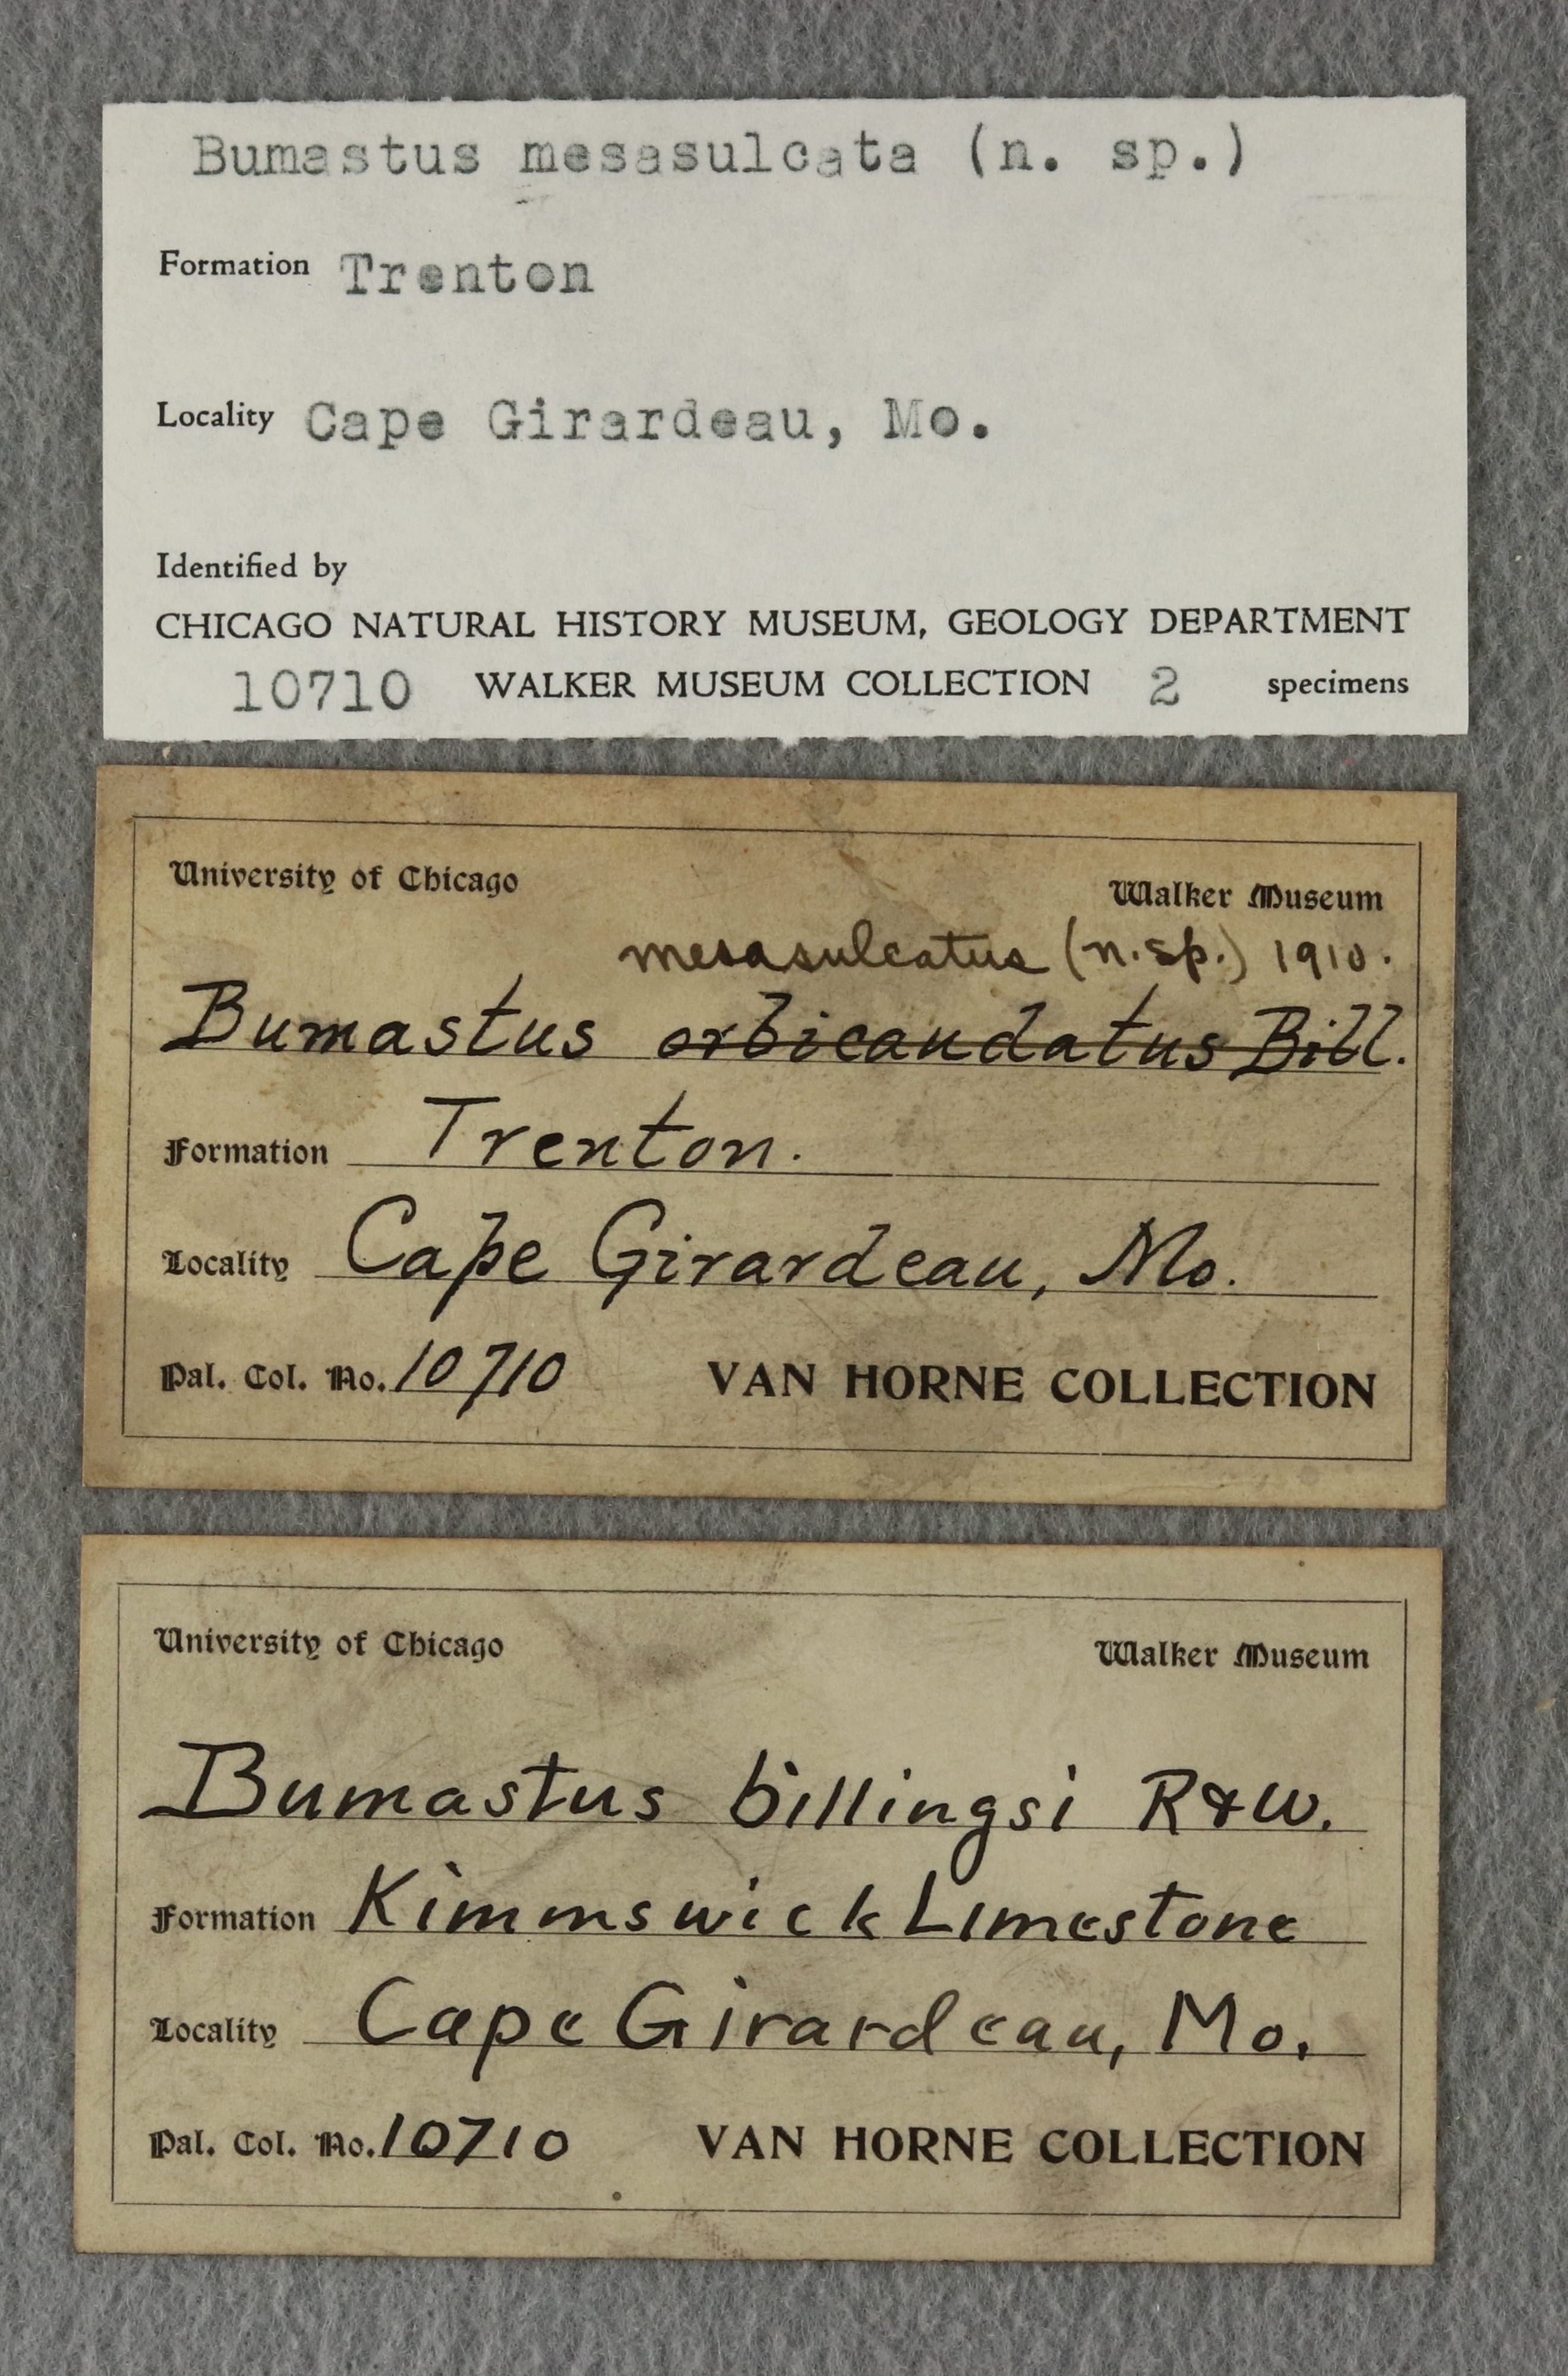 Bumastus mesasulcata (n. sp.)
Formation Trenton
Locality Cape Girardeau, Mo.
Identified by
CHICAGO NATURAL HISTORY MUSEUM, GEOLOGY DEPARTMENT
10710 WALKER MUSEUM COLLECTION 2 specimens
University of Chicago Walker Museum
mesasulcatus (n.sp.) 1910.
Bumastus orbicaudatus Bill.
Formation Trenton.
Locality Cape Girardeau, Mo.
Pal. Col. No. 10710 VAN HORNE COLLECTION
University of Chicago Walker Museum
Bumastus billingsi R&W.
Formation Kimmswick Limestone
Locality Cape Girardeau, Mo.
Pal. Col. No. 10710 VAN HORNE COLLECTION